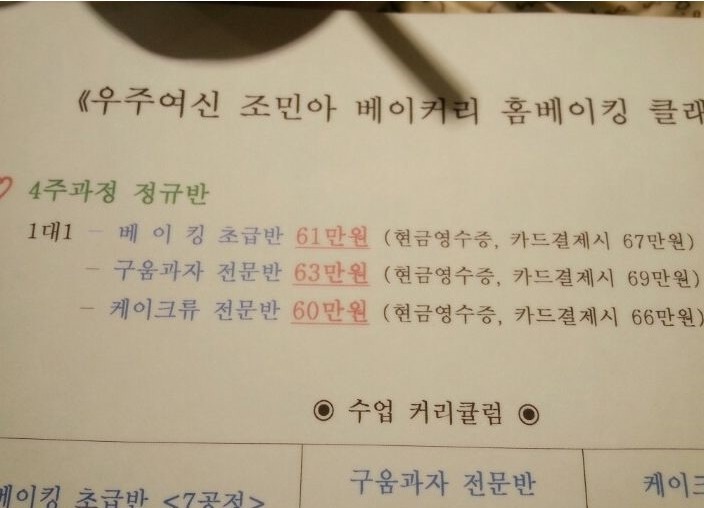 《우주여신 조민아 베이커리 홈베이킹 클래
♡ 4주과정 정규반
1대1 - 베 이 킹 초급반 61만원 (현금영수증, 카드결제시 67만원)
- 구움과자 전문반 63만원 (현금영수증, 카드결제시 69만원)
- 케이크류 전문반 60만원 (현금영수증, 카드결제시 66만원)
◉ 수업 커리큘럼 ◉
베이킹 초급반 <7공정> 구움과자 전문반 케이크